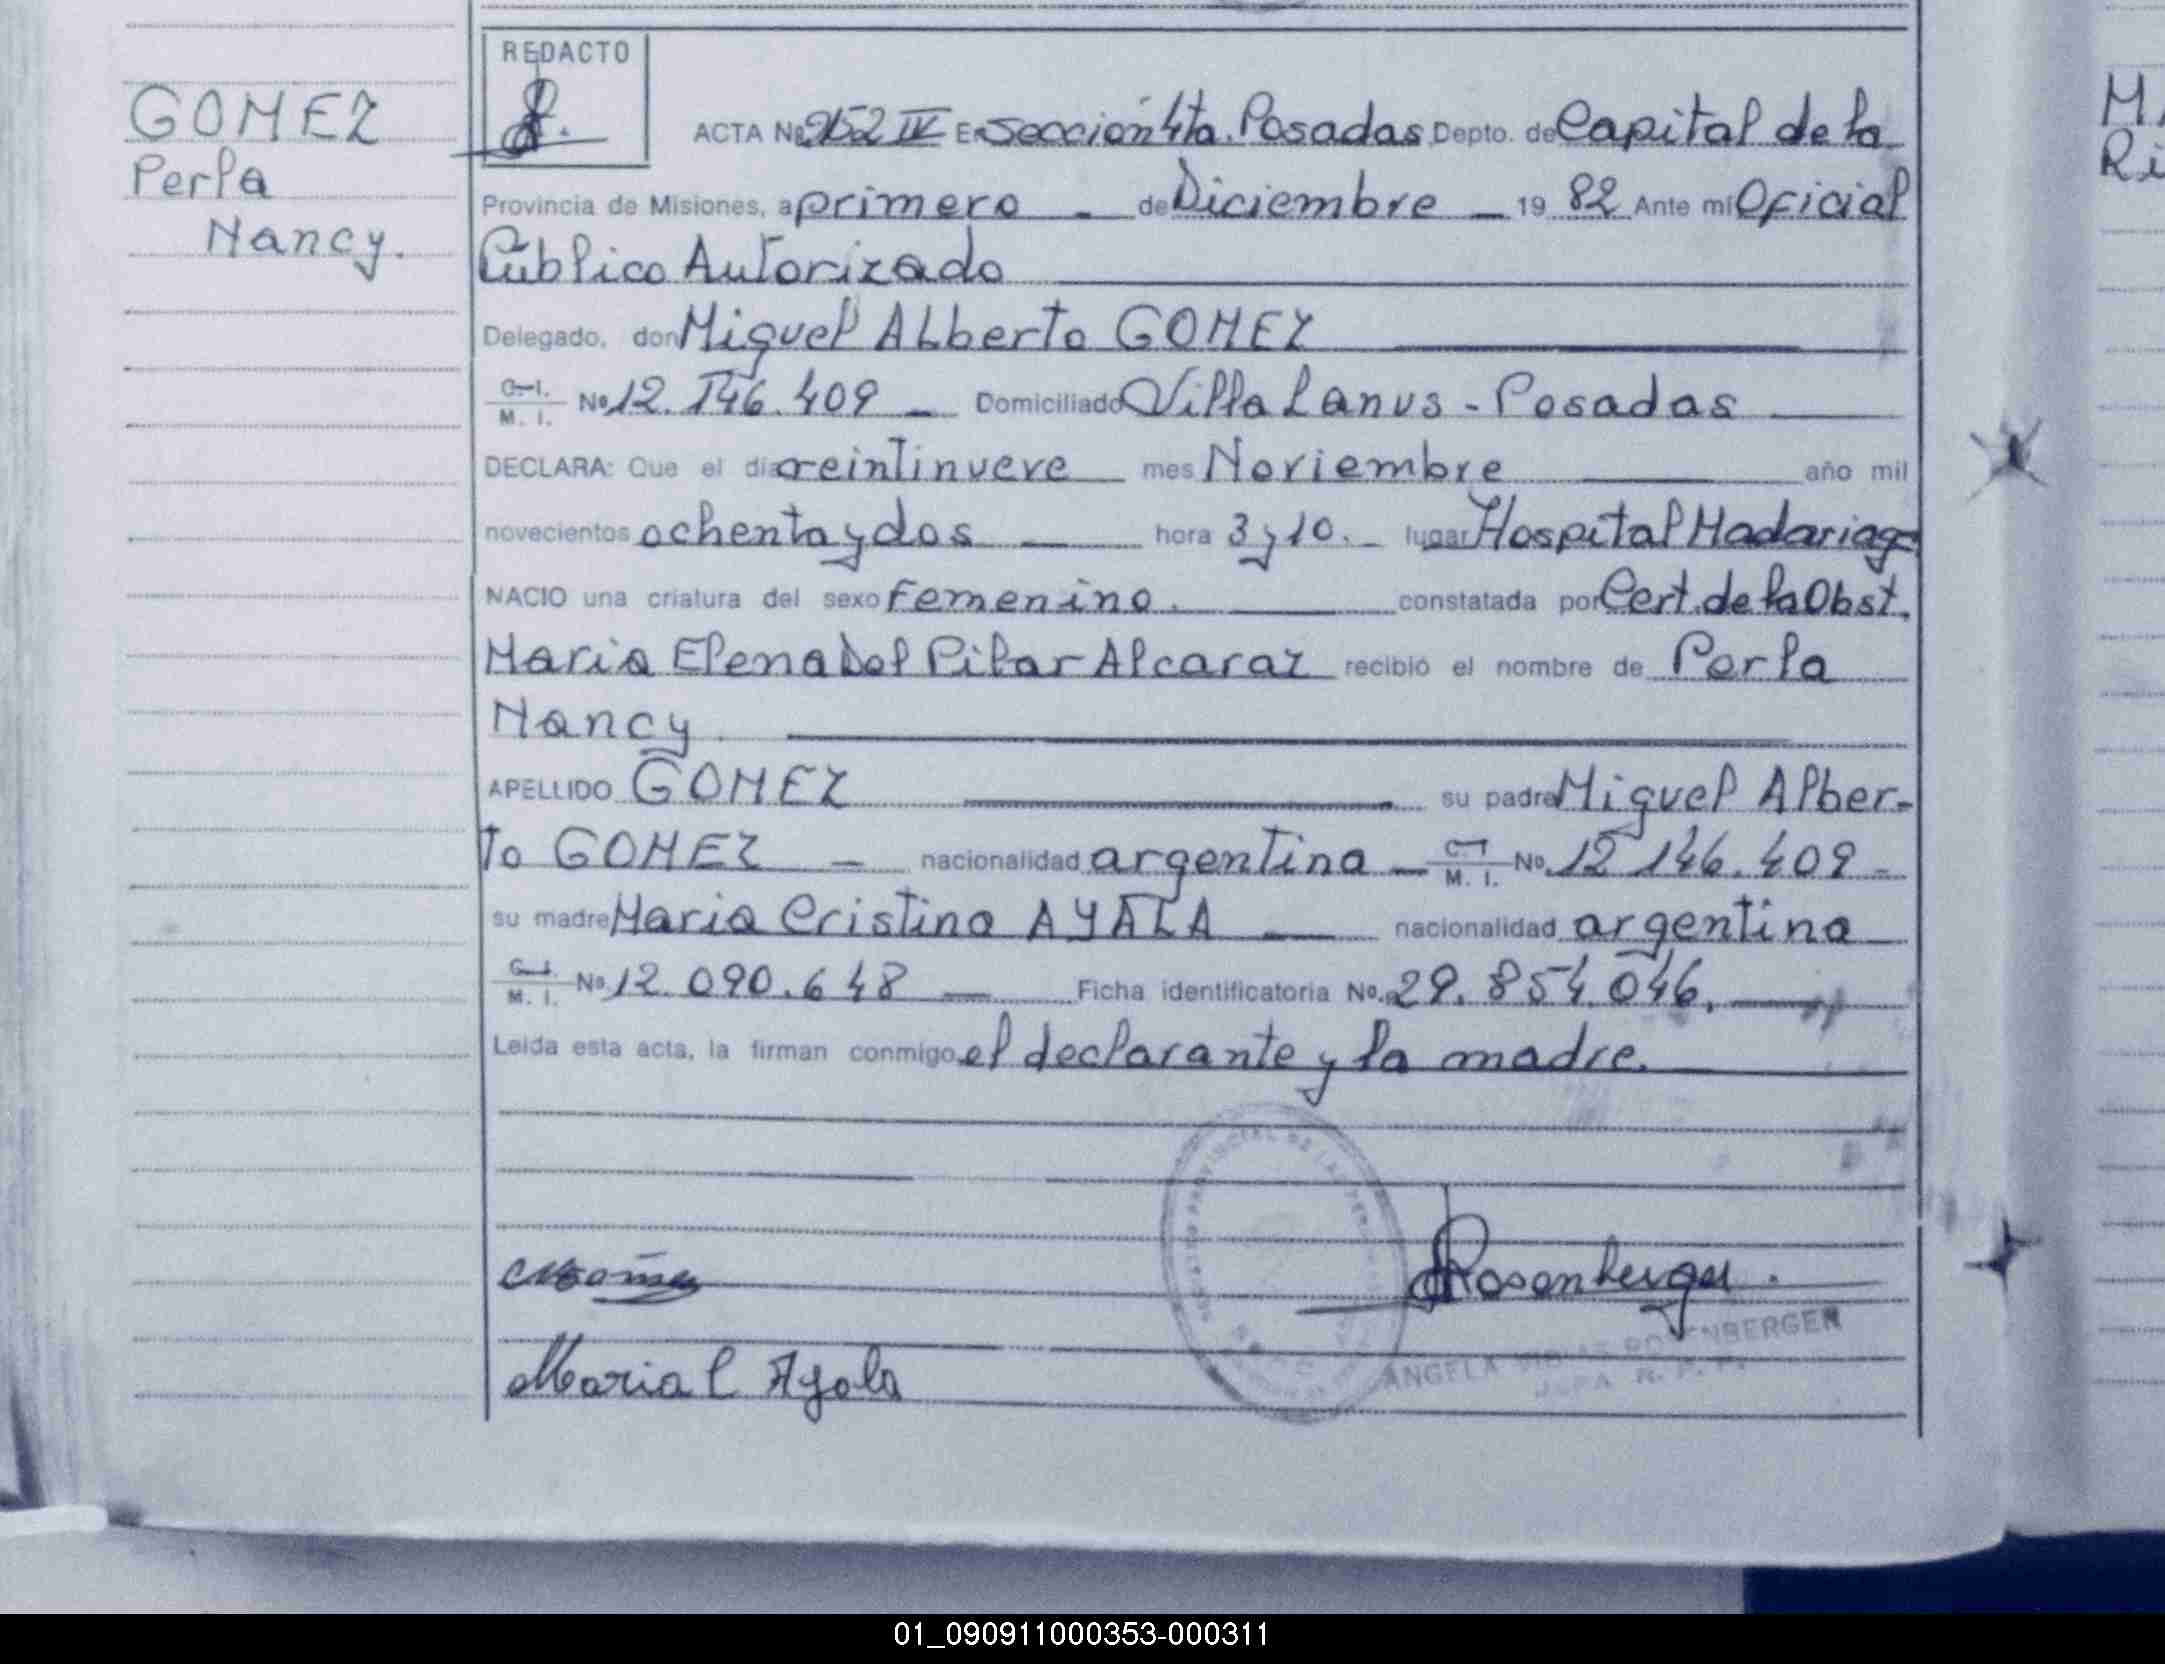 GOMEZ
Perla
Nancy.
REDACTO
ACTA Nº 2152 IV En sección 4ta. Posadas Depto. de Capital de la
Provincia de Misiones, a primero - de Diciembre - 19 82 Ante mí Oficial
Público Autorizado
Delegado, don Miguel Alberto GOMEZ
C.I. M. I. Nº 12.146.409 - Domiciliado Villa Lanus - Posadas
DECLARA: Que el día veintinueve mes Noviembre año mil
novecientos ochenta y dos hora 3 y 10. - lugar Hospital Madariaga
NACIO una criatura del sexo Femenino. constatada por Cert. de la Obst.
Maria Elena Del Pilar Alcaraz recibió el nombre de Perla
Nancy
APELLIDO GOMEZ su padre Miguel Alber-
to GOMEZ - nacionalidad argentina - C.I. M. I. Nº 12 146.409 -
su madre Maria Cristina AYALA nacionalidad argentina
C.I. M. I. Nº 12.090.648 Ficha identificatoria No. 29.854.046.
Leída esta acta, la firman conmigo el declarante y la madre.
Rosenberger.
ANGELA ROSENBERGER
Maria C Ayala
M
Ri
01_090911000353-000311